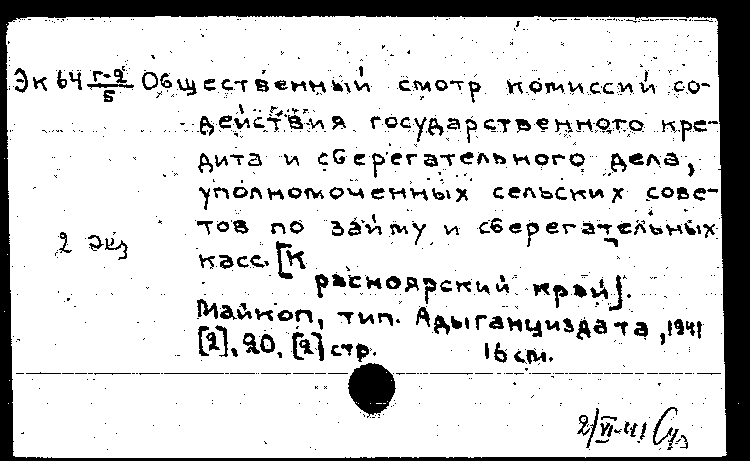 Эк 64 г-2/5 Общественный смотр комиссий со-
действия государственного кре-
дита и сберегательного дела,
уполномоченных сельских сове-
тов по займу и сберегательных
2 экз
касс. [К
расноярский край].
Майкоп, тип. Адыганциздата, 1941
[2], 20, [2] стр. 16 см.
2/VI-41